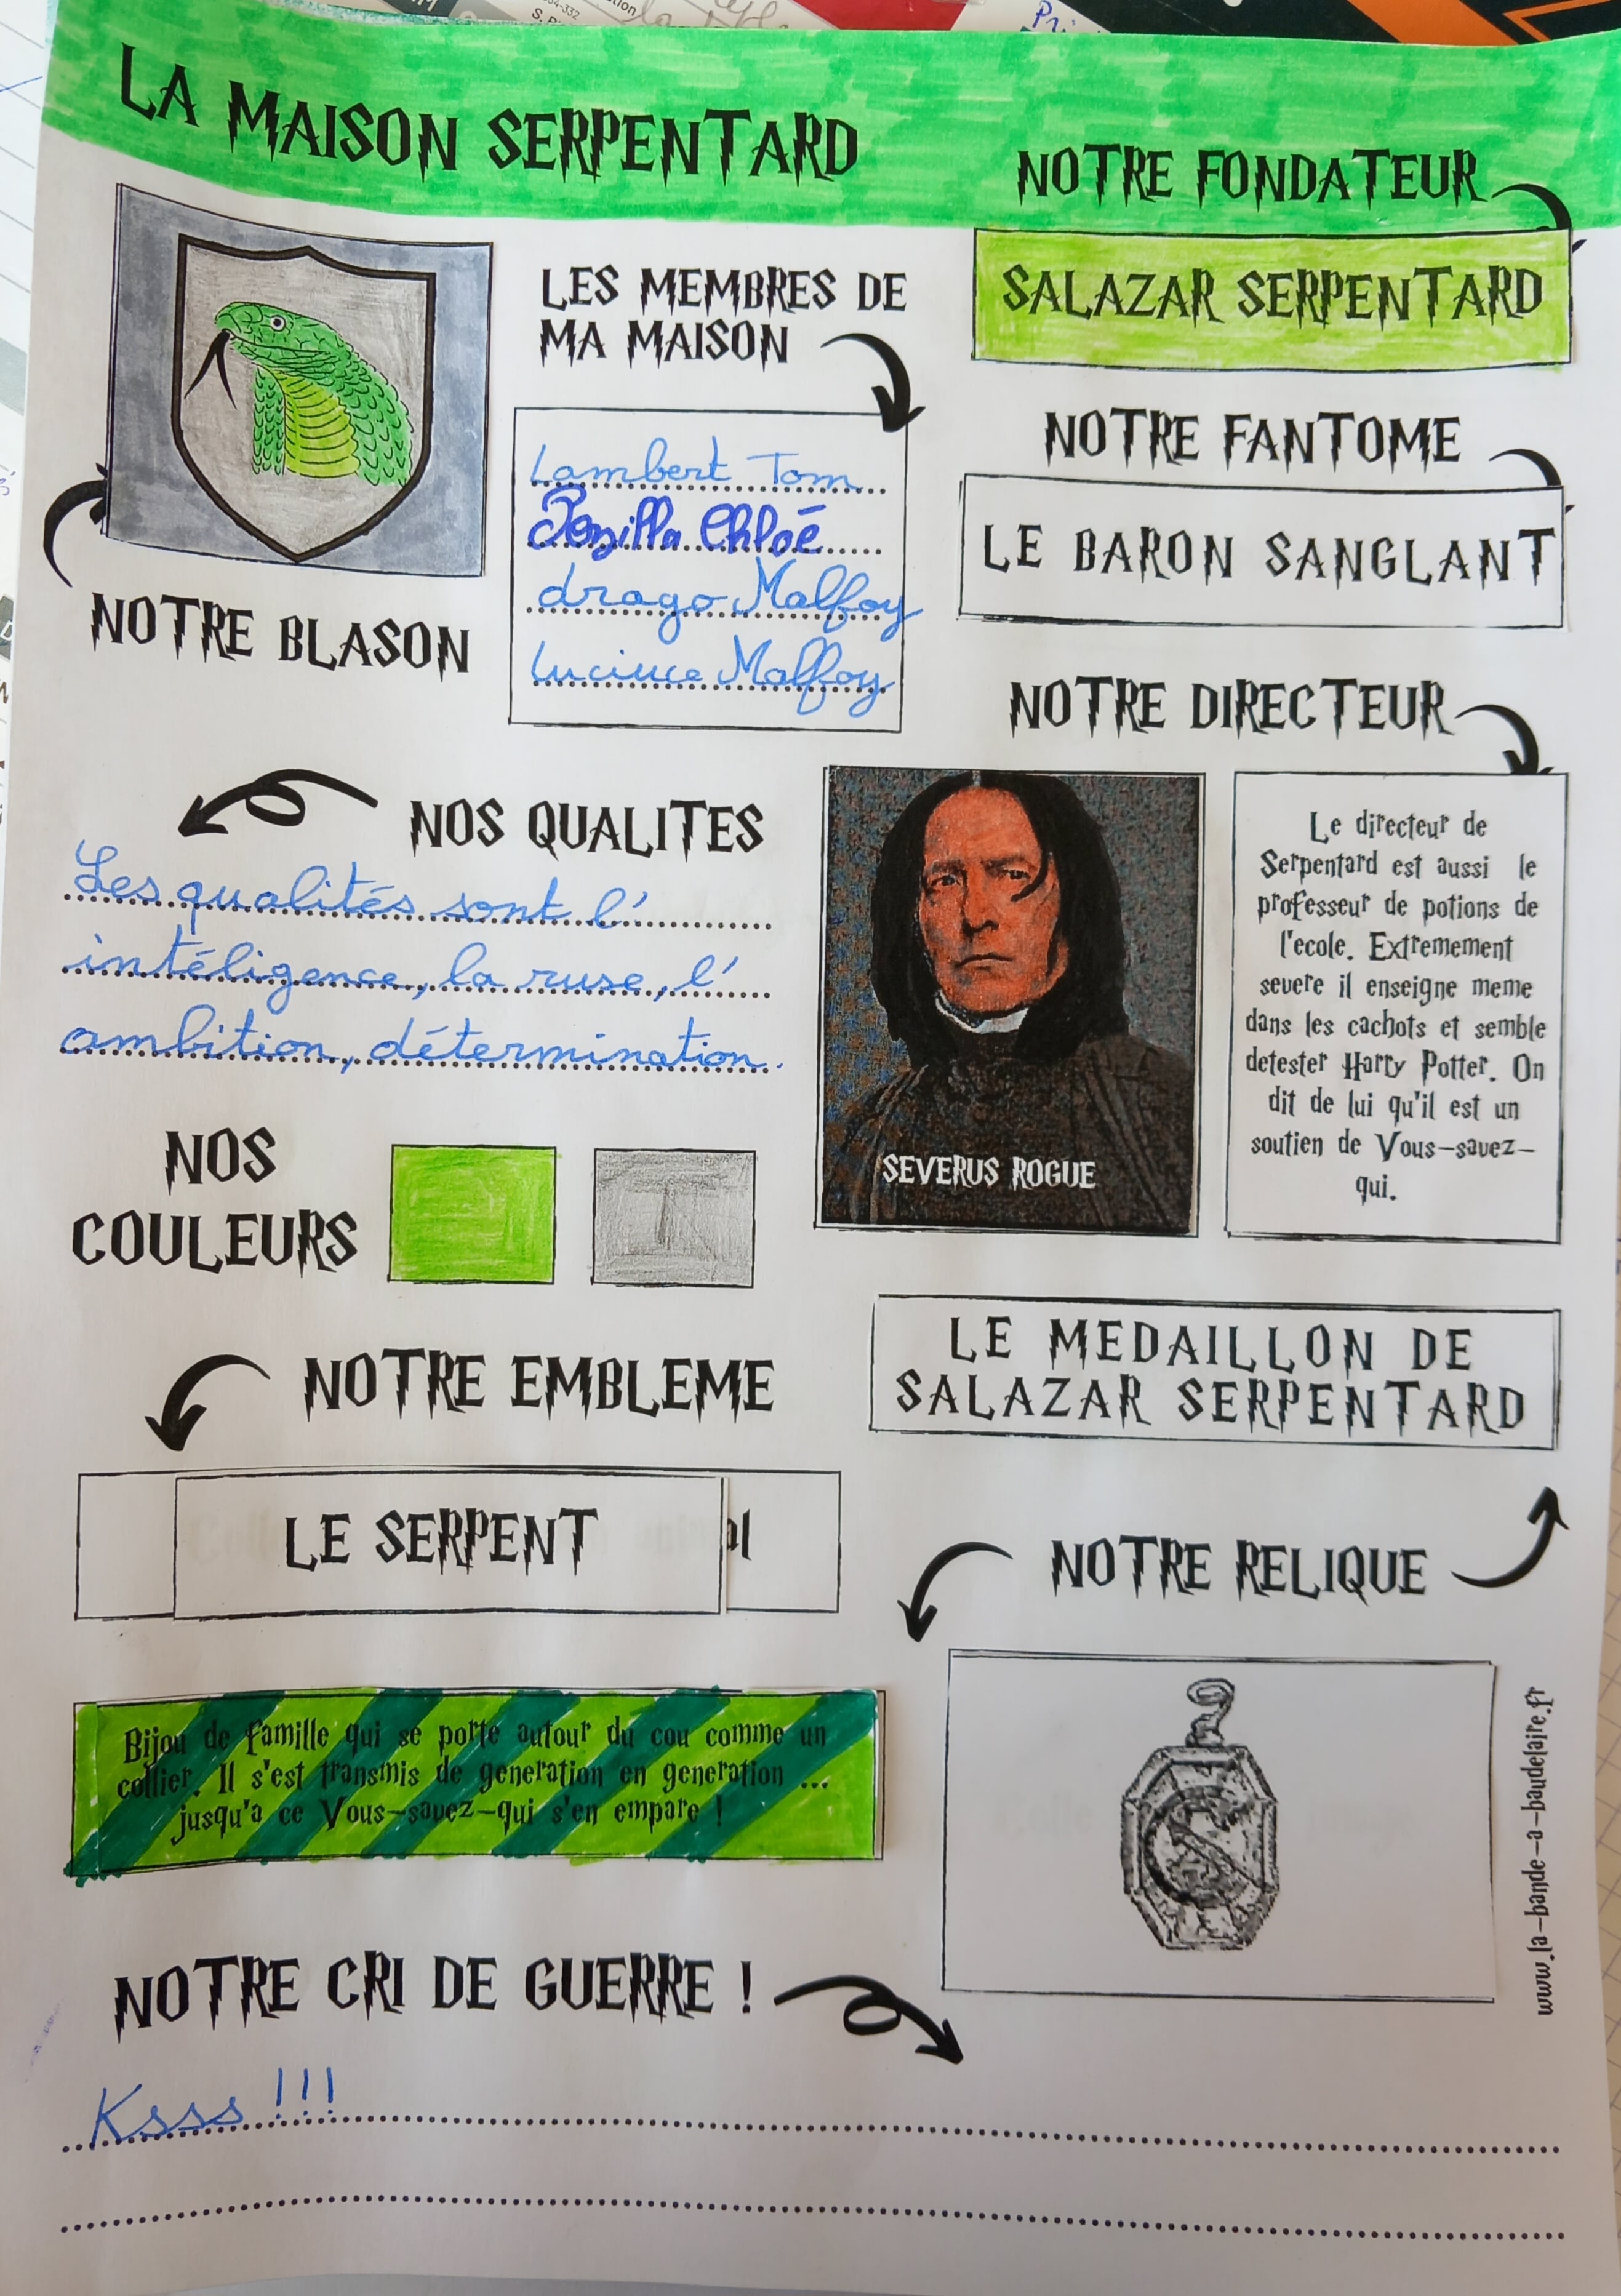 LA MAISON SERPENTARD
NOTRE FONDATEUR
SALAZAR SERPENTARD
LES MEMBRES DE
MA MAISON
Lambert Tom
Chloé
drago Malfoy
Luciuce Malfoy
NOTRE BLASON
NOTRE FANTOME
LE BARON SANGLANT
NOTRE DIRECTEUR
Le directeur de
Serpentard est aussi le
professeur de potions de
l'ecole. Extremement
severe il enseigne meme
dans les cachots et semble
detester Harry Potter. On
dit de lui qu'il est un
soutien de Vous-savez-
qui.
SEVERUS ROGUE
NOS QUALITES
Les qualités sont l'
intéligence, la ruse, l'
ambition, détermination.
NOS
COULEURS
NOTRE EMBLEME
LE SERPENT
LE MEDAILLON DE
SALAZAR SERPENTARD
NOTRE RELIQUE
Bijou de famille qui se porte autour du cou comme un
collier. Il s'est transmis de generation en generation ...
jusqu'a ce Vous-savez-qui s'en empare !
www.la-bande-a-baudelaire.fr
NOTRE CRI DE GUERRE !
Ksss !!!